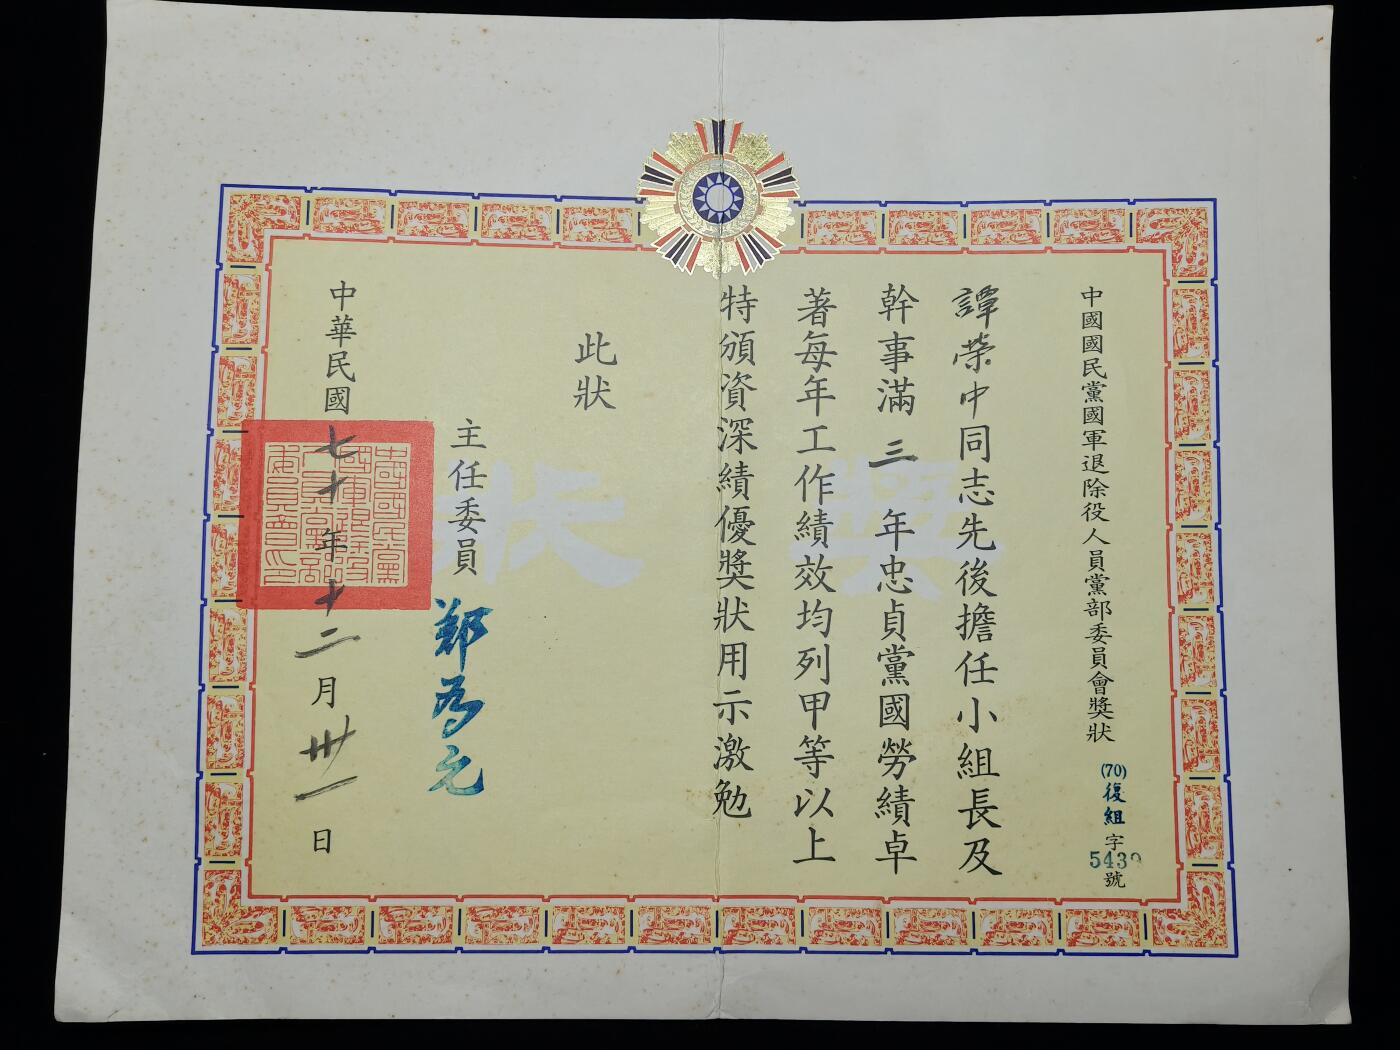 中國國民黨國軍退除役人員黨部委員會獎狀
(70)復組字
543
號
譚榮中同志先後擔任小組長及
幹事滿三年忠貞黨國勞績卓
著每年工作績效均列甲等以上
特頒資深績優獎狀用示激勉
此狀
主任委員
鄭為元
中華民國七十年十二月卅一日
獎狀